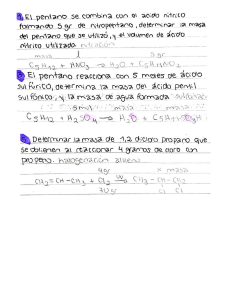 El pentano se combina con el acido nitrico
formando 5 gr de nitropentano, determinar la masa
del pentano que se utilizó, y el volumen de ácido
nítrico utilizado nitración
masa l 5 gr
C5H12 + HNO3 → H2O + C5H11NO2
El pentano reacciona con 5 moles de ácido
sulfónico, determina la masa del ácido pentil
sulfónico, y la masa de agua formada
C5H12 + H2SO4 → H2O + C5H11SO3H
Determinar la masa de 1,2 dicloro propano que
se obtienen al reaccionar 4 gramos de cloro con
propeno. halogenación alqueno
4gr x masa
CH2=CH-CH3 + Cl2 → CH3-CH-CH2
70gr Cl Cl